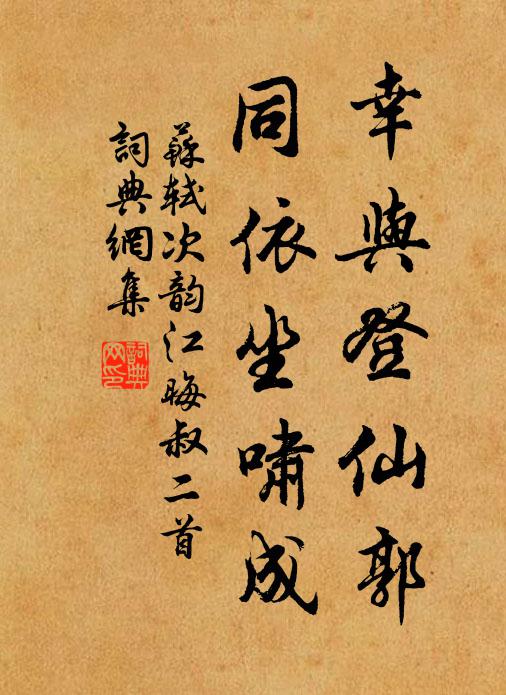 幸與登仙郭
同依坐嘯成
蘇軾次韵江晦叔二首
詞典網集
詞典
网印